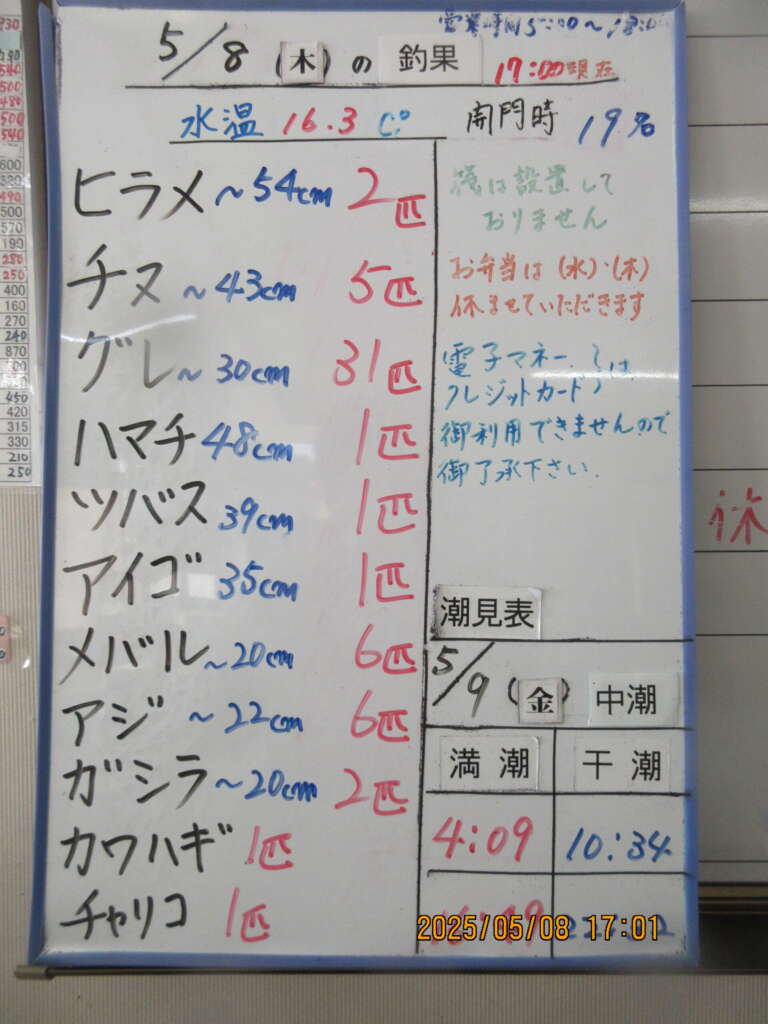 営業時間5:00～
5/8(木)の 釣果 17:00現在
水温 16.3 C° 開門時 19名
ヒラメ ～54cm 2匹
チヌ ～43cm 5匹
グレ ～30cm 31匹
ハマチ 48cm 1匹
ツバス 39cm 1匹
アイゴ 35cm 1匹
メバル ～20cm 6匹
アジ ～22cm 6匹
ガシラ ～20cm 2匹
カワハギ 1匹
チャリコ 1匹
筏は設置して
おりません
お弁当は(水)・(木)
休ませていただきます
電子マネー、
クレジットカード は
御利用できませんので
御了承下さい.
潮見表
5/9(金) 中潮
満潮 干潮
4:09 10:34
2025/05/08 17:01
休